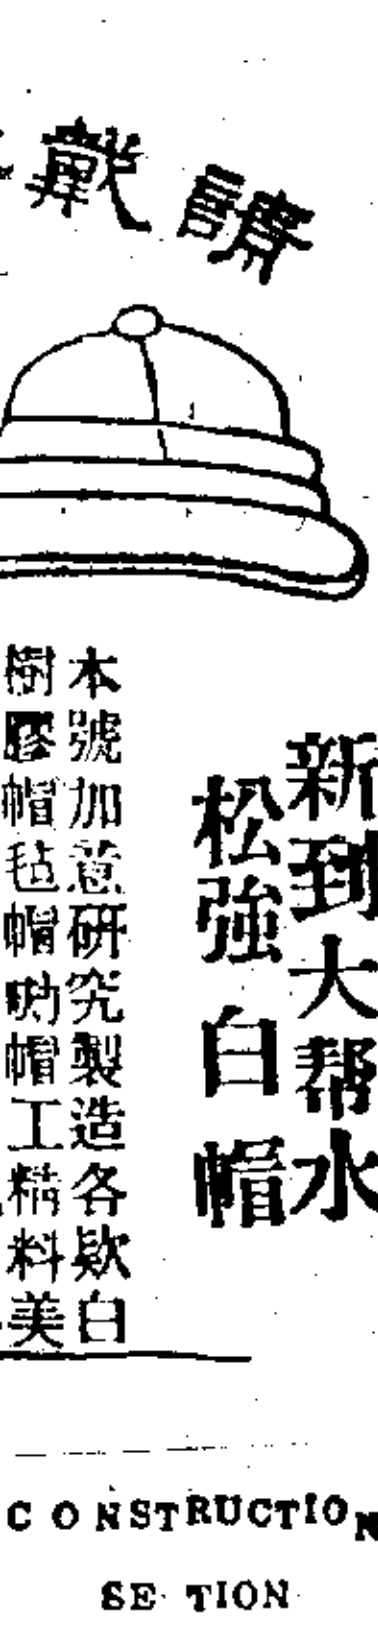 請戴
新到大帮水
松強白帽
本號加意研究製造各欵白
樹膠帽毡帽吻帽工精料美
CONSTRUCTION
SE TION